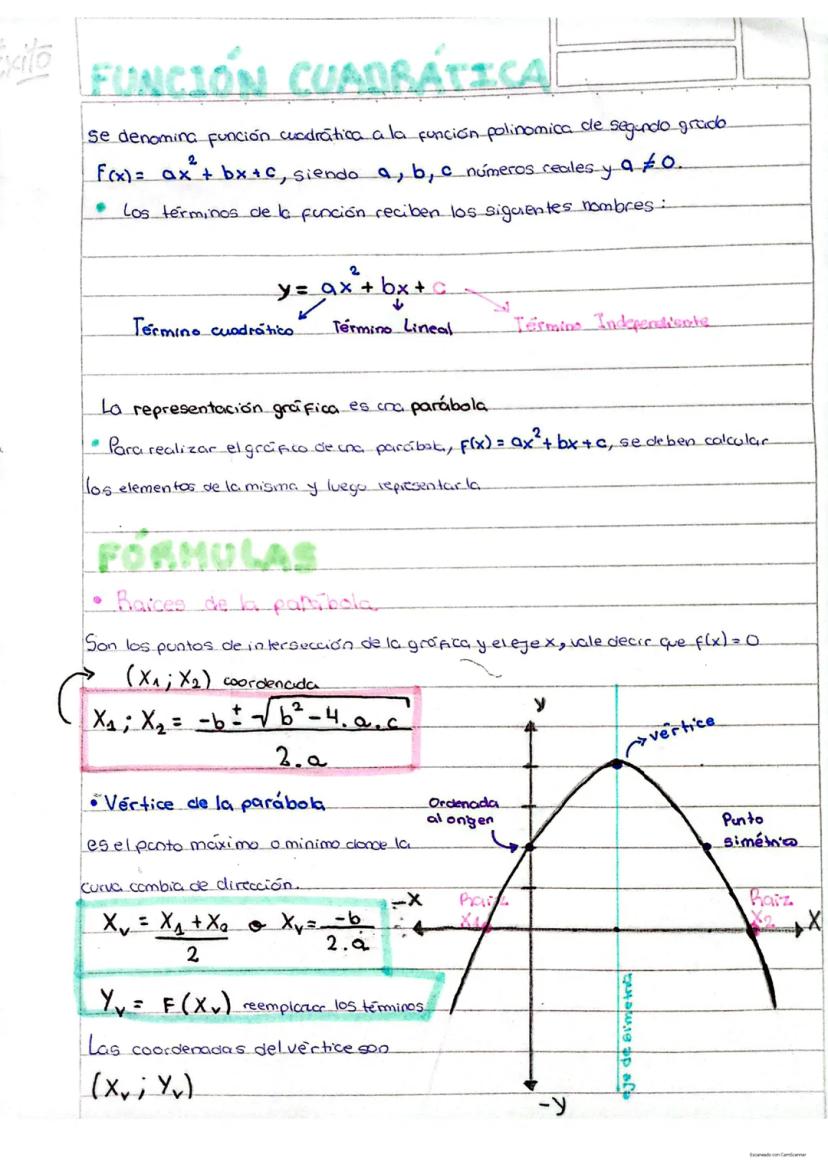 Éxito
FUNCIÓN CUADRÁTICA
Se denomina función cuadrática a la función polinomica de segundo grado
F(x) = ax² + bx + c, siendo a, b, c números reales y a ≠ 0.
• Los términos de la función reciben los siguientes nombres:
y = ax² + bx + c
Término cuadrático Término Lineal Término Independiente
La representación gráfica es una parábola
• Para realizar el gráfico de una parábola, f(x) = ax² + bx + c, se deben calcular
los elementos de la misma y luego representarla
FÓRMULAS
• Raíces de la parábola
Son los puntos de intersección de la gráfica y el eje x, vale decir que f(x) = 0
(X1 ; X2) coordenada
X1 ; X2 = -b ± √b² - 4. a. c
2. a
• Vértice de la parábola
es el punto máximo o mínimo donde la
curva cambia de dirección.
Xv = X1 + X2 / 2 o Xv = -b / 2. a
Yv = F(Xv) reemplazar los términos
Las coordenadas del vértice son
(Xv ; Yv)
y
vértice
Ordenada
al origen
Punto
simétrico
-X
Raíz
X1
Raíz
X2
X
eje de simetría
-y
Escaneado con CamScanner